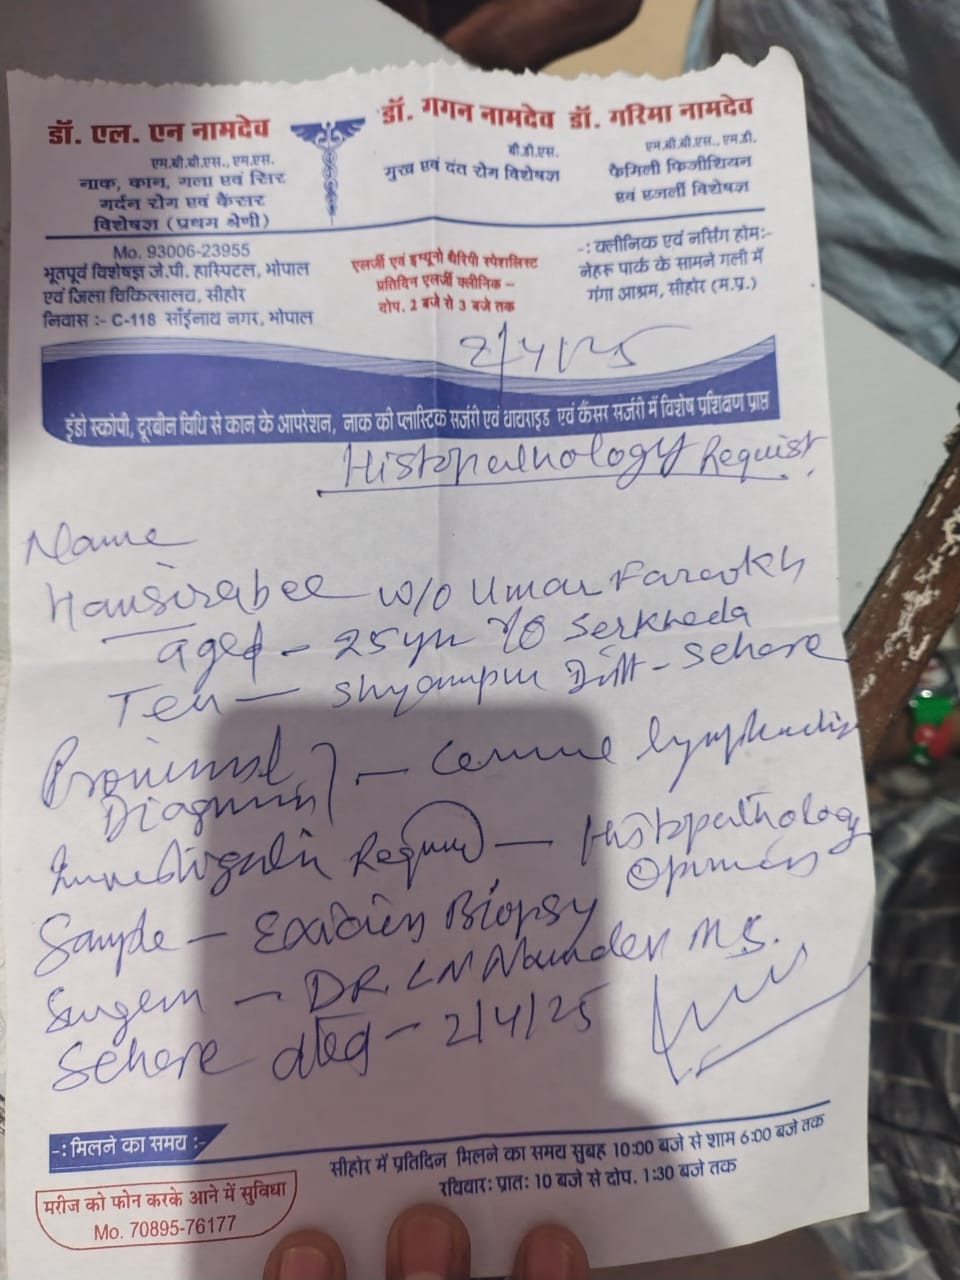 डॉ. एल. एन नामदेव
एम.बी.बी.एस., एम.एस.
नाक, कान, गला एवं सिर
गर्दन रोग एवं कैंसर
विशेषज्ञ (प्रथम श्रेणी)
Mo. 93006-23955
भूतपूर्व विशेषज्ञ जे.पी. हास्पिटल, भोपाल
एवं जिला चिकित्सालय, सीहोर
निवास :- C-118 साँईनाथ नगर, भोपाल
डॉ. गगन नामदेव
बी.डी.एस.
मुख एवं दंत रोग विशेषज्ञ
एलर्जी एवं इम्यूनो थैरिपी स्पेशलिस्ट
प्रतिदिन एलर्जी क्लीनिक -
दोप. 2 बजे से 3 बजे तक
डॉ. गरिमा नामदेव
एम.बी.बी.एस., एम.डी.
फैमिली फिजीशियन
एवं एलर्जी विशेषज्ञ
-: क्लीनिक एवं नर्सिंग होम:-
नेहरू पार्क के सामने गली में
गंगा आश्रम, सीहोर (म.प्र.)
2/4/25
इंडो स्कोपी, दूरबीन विधि से कान के आपरेशन, नाक की प्लास्टिक सर्जरी एवं थायराइड एवं कैंसर सर्जरी में विशेष प्रशिक्षण प्राप्त
Histopathology Requist
Name
w/o Umar Farookh
aged - 25 yr r/o Serkheda
Teh - Shyampur Distt - Sehore
Diagnosis -
Required - Histopathology
Opinion
Sample - Biopsy
Surgeon - DR. LN Namdev M.S.
Sehore dtd - 2/4/25
-: मिलने का समय :-
सीहोर में प्रतिदिन मिलने का समय सुबह 10:00 बजे से शाम 6:00 बजे तक
रविवार: प्रात: 10 बजे से दोप. 1:30 बजे तक
मरीज को फोन करके आने में सुविधा
Mo. 70895-76177